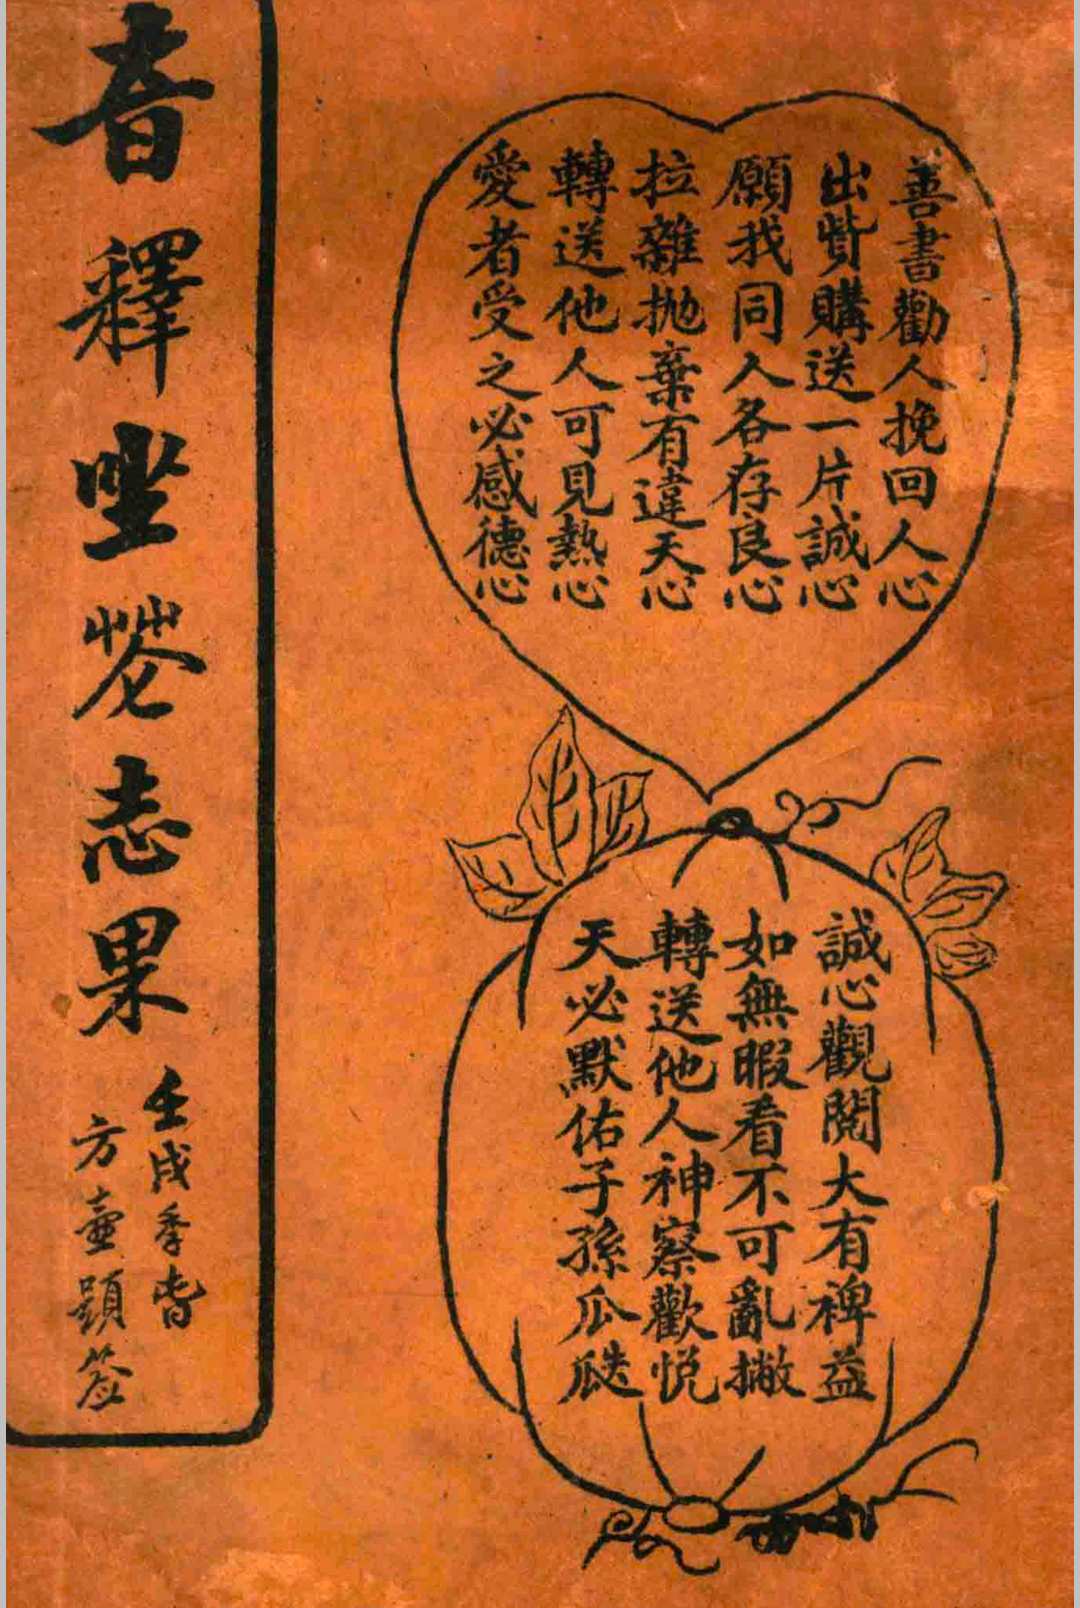 善書勸人挽回人心
出貲購送一片誠心
願我同人各存良心
拉雜抛棄有違天心
轉送他人可見熱心
愛者受之必感德心
誠心觀閱大有裨益
如無暇看不可亂撇
轉送他人神察歡悅
天必默佑子孫瓜瓞
音釋坐花志果
壬戌季旾
方壺題签